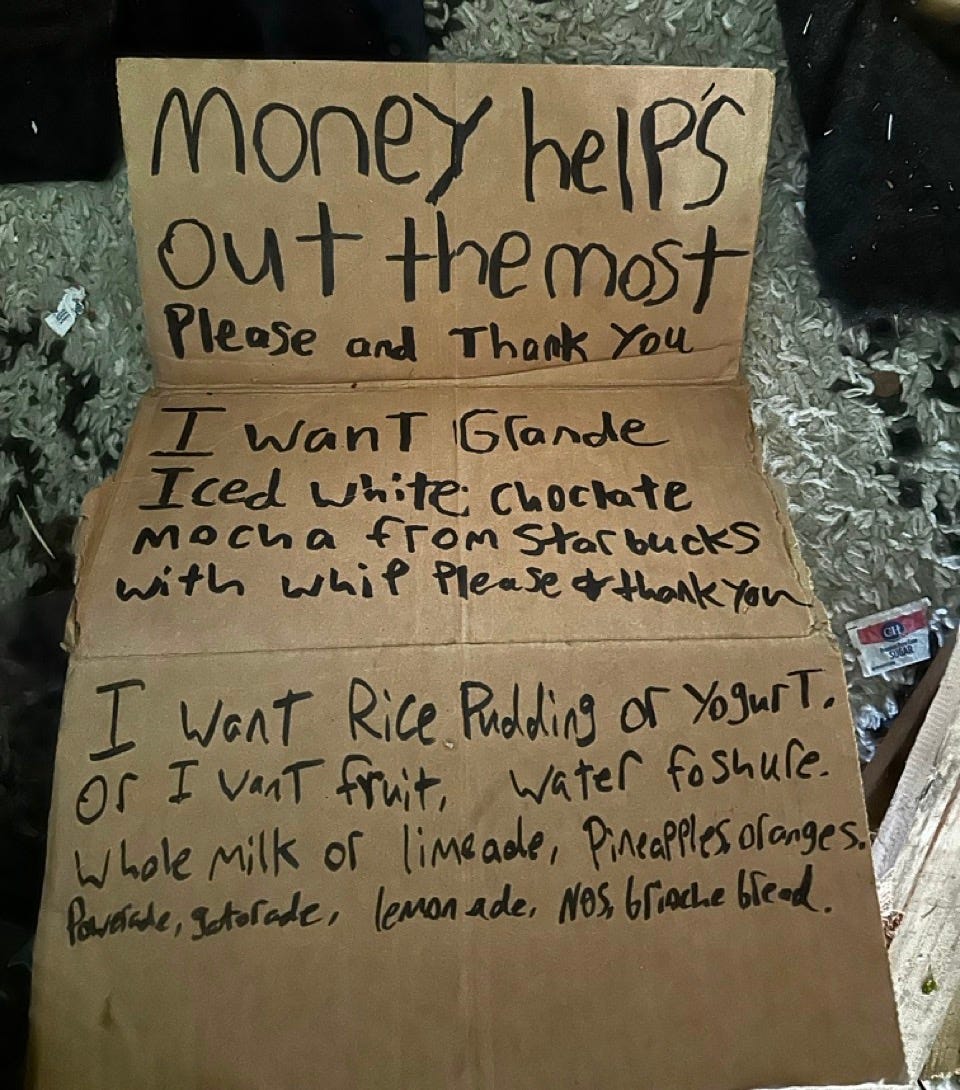 Money help's
out the most
Please and Thank You
I want Grande
Iced white choclate
mocha from Starbucks
with whip Please & thank you
I want Rice Pudding or Yogurt.
Or I vant fruit, water foshure.
Whole milk or limeade, Pineapples oranges.
Powerade, gatorade, lemonade, NOS, brioche bread.
CH
SUGAR